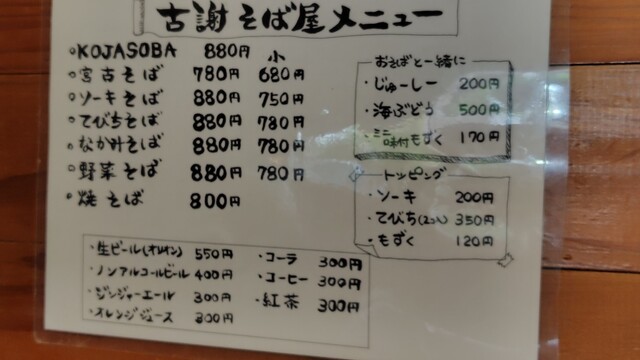 古謝そば屋メニュー
小
KOJASOBA 880円
宮古そば 780円 680円
ソーキそば 880円 750円
てびちそば 880円 780円
なかみそば 880円 780円
野菜そば 880円 780円
焼そば 800円
おそばと一緒に
・じゅーしー 200円
・海ぶどう 500円
・ミニ味付もずく 170円
トッピング
・ソーキ 200円
・てびち(2コ入) 350円
・もずく 120円
・生ビール(オリオン) 550円
・ノンアルコールビール 400円
・ジンジャーエール 300円
・オレンジジュース 300円
・コーラ 300円
・コーヒー 300円
・紅茶 300円